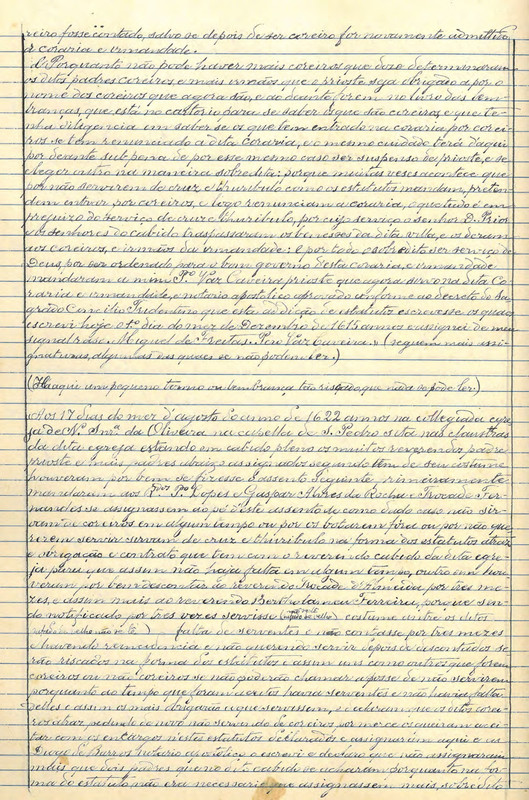 reiro fosse contado, salvo se depois de ser coreiro for novamente admittido
á coraria e irmandade.
Porquanto não pode haver mais coreiros que doze determinaram
os ditos padres coreiros e mais irmãos que o prioste seja obrigado a por o
nome dos coreiros que agora são, e ao deante forem no livro das lem-
branças, que está no cartorio para se saber os que são coreiros, e que te-
nha diligencia em saber se os que tem entrado na coraria por corei-
ros se tem renunciado á dita coraria, e o mesmo cuidado terá daqui
por deante sub pena de por esse mesmo caso ser suspenso de prioste, e se
eleger outro na maneira sobredita: porque muitas vezes acontece que
por não servirem de cruz e thuribulo como os estatutos mandam, preten-
dem entrar por coreiros, e logo renunciam a coraria, o que tudo é em
prejuizo do serviço de cruz e thuribulo, por cujo serviço o senhor D. Prior
e os senhores do cabido traspassaram os dita villa, e os deram
aos coreiros, e irmãos da irmandade: e por todo o sobredito ser serviço de
Deus, por ser ordenado para o bom governo desta coraria, e irmandade
mandaram a mim Pº Vaz prioste que agora sirvo na dita Co-
raria e irmandade, e notario apostolico aprovado conforme ao decreto do sa-
grado Concilio Tridentino que esta addição e estatutos escrevesse os quaes
escrevi hoje o 1º dia do mez de Dezembro de 1615 annos e assignei de meu
signal raso. Miguel de Freitas. Pero Vaz (seguem mais assi-
gnaturas, algumas das quaes se não podem ler.)
(Ha aqui um pequeno termo ou lembrança tão riscado, que nada se pode ler.)
Aos 17 dias do mez d'agosto do anno de 1622 annos na collegiada egre-
ja de Nª Snrª da Oliveira na capella de S. Pedro sita nas claustras
da dita egreja estando em cabido pleno os muitos reverendos padre
prioste e mais padres abaixo assignados segundo uso de seu costume
houveram por bem se fizesse o assento seguinte, primeiramente
mandaram aos Pº Lopes e Gaspar Alvres da Rocha e Fer-
nandes se assignassem ao pé deste assento de como dado caso não sir-
vam de coreiros em algum tempo ou por os botarem fóra ou por não que-
rerem servir sirvam de cruz e thuribulo na forma dos estatutos
e obrigação e contrato que tem com o reverendo cabido da dita egre-
ja para que assim não haja falta em algum tempo, outro sim hou-
veram por bem descontar ao reverendo d'Almeida por tres me-
zes, e assim mais ao reverendo Bertholameu Ferreira, porque sen-
do notificado por tres vezes servisse costume entre os ditos
 falta de serventes e não contasse por tres mezes
e havendo reincidencia e não querendo servir depois de descontados se-
rão riscados na forma dos estatutos e assim uns como outros que forem
coreiros ou não coreiros se não poderão chamar a posse de não servirem
porquanto ao tempo que foram aceitos havia serventes e não havia falta
delles e assim os mais obrigarão a que servissem, e aceitaram que os ditos cora-
rios pedindo de novo não servindo de coreiros por merce os queiram acei-
tar com os encargos nestes estatutos declarados e assignarem aqui e eu
Diogo de Barros notario apostolico o escrevi e declaro que não assignaram
mais que dois padres que no dito cabido se acharam porquanto na for-
ma do estatuto não era necessario que assignassem mais, sobredito